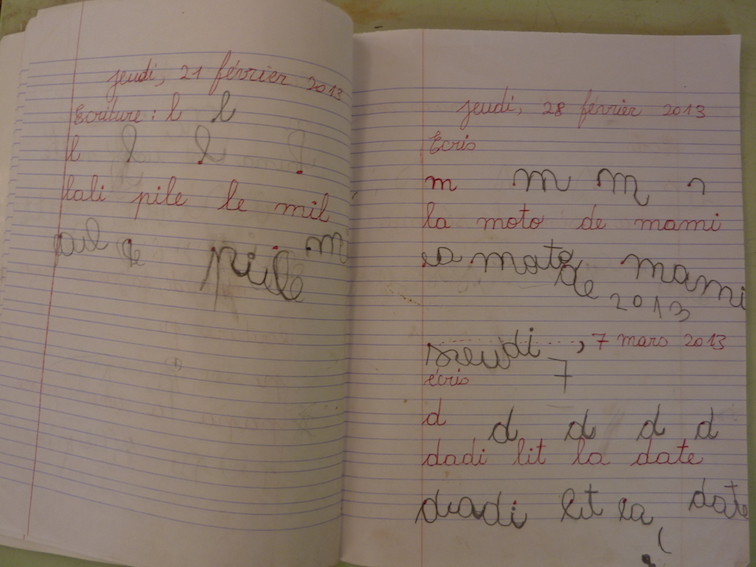 jeudi, 21 février 2013
Ecriture : l l
l l l l
lali pile le mil
pile m
jeudi, 28 février 2013
Ecris
m m m m
la moto de mami
la moto de mami
2013
jeudi, 7 mars 2013
7
écris
d d d d d
dadi lit la date
dadi lit la date